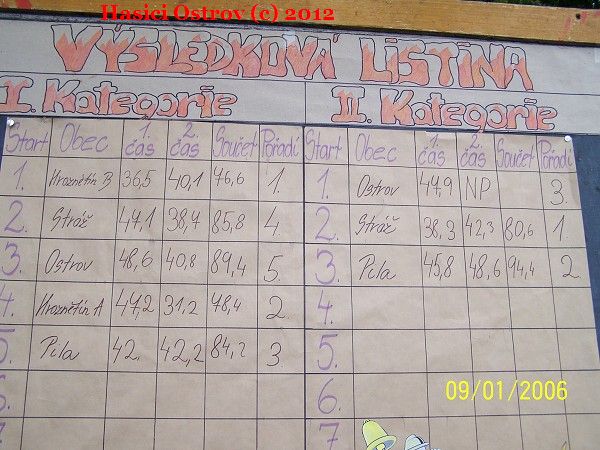 Hasici Ostrov (c) 2012
VÝSLEDKOVÁ LISTINA
I. Kategorie II. Kategorie
Start Obec 1. čas 2. čas Součet Pořadí Start Obec 1. čas 2. čas Součet Pořadí
1. Hroznětín B 36,5 40,1 76,6 1. 1. Ostrov 47,9 NP 3.
2. Stráž 47,1 38,7 85,8 4. 2. Stráž 38,3 42,3 80,6 1.
3. Ostrov 48,6 40,8 89,4 5. 3. Pila 45,8 48,6 94,4 2.
4. Hroznětín A 47,2 31,2 78,4 2. 4.
5. Pila 42, 42,2 84,2 3. 5.
6. 6.
7. 7
09/01/2006